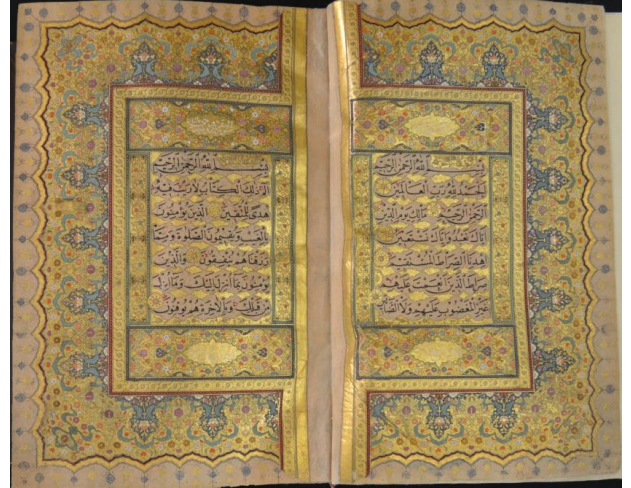 بسم الله الرحمن الرحيم
الحمد لله رب العالمين
الرحمن الرحيم مالك يوم الدين
اياك نعبد واياك نستعين
اهدنا الصراط المستقيم
صراط الذين انعمت عليهم
غير المغضوب عليهم ولا الضالين
بسم الله الرحمن الرحيم
الم ذلك الكتاب لا ريب فيه
هدى للمتقين الذين يؤمنون
بالغيب ويقيمون الصلوة ومما
رزقناهم ينفقون والذين
يؤمنون بما انزل اليك وما انزل
من قبلك وبالاخرة هم يوقنون